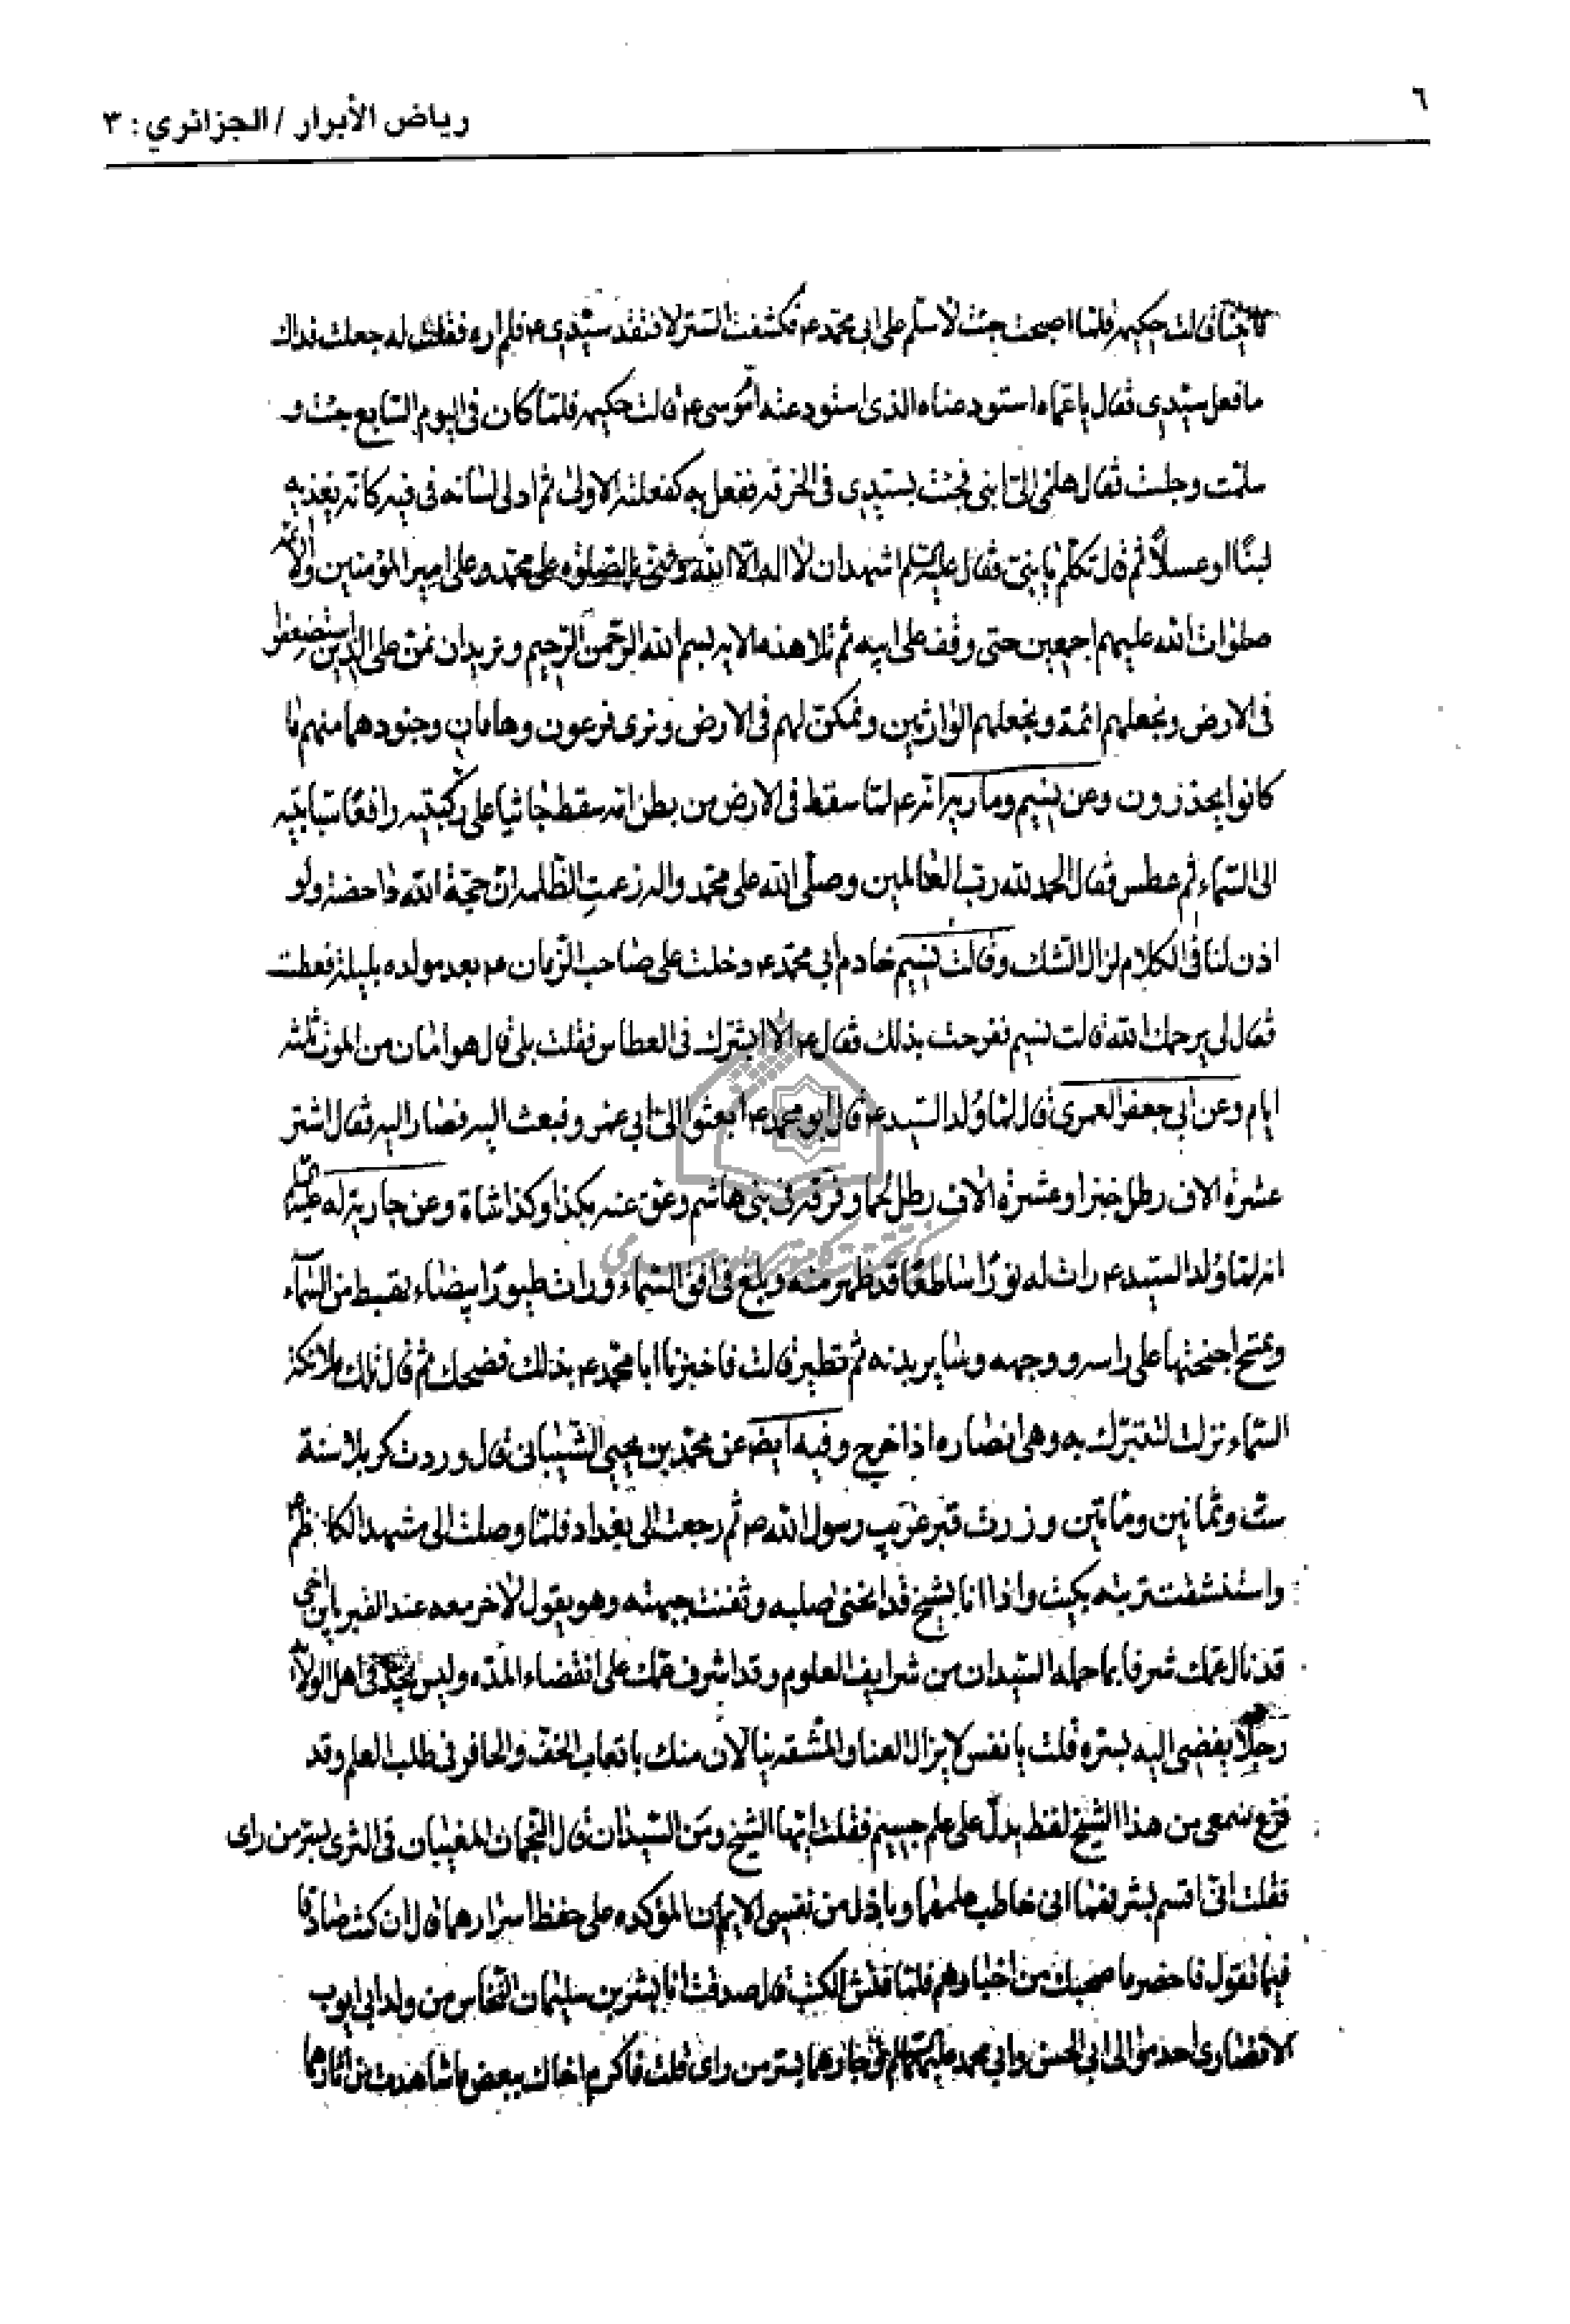 ٦
رياض الأبرار / الجزائري : ٣
قالت حكيمه فلما اصبحت جئت لاسلم على ابى محمد ع فكشفت الستر لافتقد سيدى ع فلم اره فقلت له جعلت فداك
ما فعل سيدى فقال يا عمّاه استودعناه الذى استودعته ام موسى ع قالت حكيمه فلمّا كان فى اليوم السّابع جئت و
سلمت وجلست فقال هلمّى الىّ ابنى فجئت بسيّدى فى الخرقه ففعل به كفعلته الاولى ثم ادلى لسانه فى فيه كانّه يغذيه
لبنًا او عسلاً ثم قال تكلّم يا بنىّ فقال عليه السلم اشهد ان لا اله الّا الله وثنّى بالصلوة على محمد وعلى امير المؤمنين والائمه
صلوات الله عليهم اجمعين حتى وقف على ابيه ثم تلا هذه الايه بسم الله الرّحمن الرّحيم ونريد ان نمن على الذين استضعفوا
فى الارض ونجعلهم ائمة ونجعلهم الوارثين ونمكّن لهم فى الارض ونرى فرعون وهامان وجنودهما منهم ما
كانوا يحذرون وعن نسيم وماريه انّه ع لمّا سقط فى الارض من بطن امه سقط جاثيا على ركبتيه رافعًا سبابتيه
الى السّماء ثم عطس فقال الحمد لله ربّ العالمين وصلّى الله على محمّد واله زعمت الظّلمه انّ حجّة الله داحضة ولو
اذن لنا فى الكلام لزال الشك وقالت نسيم خادم ابى محمّد ع دخلت على صاحب الزّمان ع بعد مولده بليلة فعطست
فقال لى يرحمك الله قالت نسيم ففرحت بذلك فقال ع الا ابشرك فى العطاس فقلت بلى قال هو امان من الموت ثلثه
ايام وعن ابى جعفر العمرى قال لمّا وُلد السّيد ع قال ابو محمد ع ابعثوا الى ابى عمرو فبعث اليه فصار اليه فقال اشتر
عشرة الاف رطل خبزا وعشرة الاف رطل لحما وفرّقه فى بنى هاشم وعقّ عنه بكذا وكذا شاة وعن جارية له عليه السلم
انه لمّا وُلد السيد ع رات له نورًا ساطعًا قد ظهر منه وبلغ فى افق السّماء ورات طيورًا بيضاء تهبط من السّمآء
وتمسح اجنحتها على راسه ووجهه وساير بدنه ثم تطير قالت فاخبرنا ابا محمّد ع بذلك فضحك ثم قال تلك ملائكة
السّماء نزلت لتتبرّك به وهى انصاره اذا خرج وفيه ايضا عن محمّد بن يحيى الشيبانى قال وردت كربلا سنة
ستّ وثمانين ومأتين وزرت قبر غريب رسول الله ص ثم رجعت الى بغداد فلمّا وصلت الى مشهد الكاظم ع
واستنشقت تربته بكيت واذا انا بشيخ قد انحنى صلبه وثفنت جبهته وهو يقول لاخر معه عند القبر يا بن اخى
قد نال عمّك شرفا بما حمله السّيدان من شرايف العلوم وقد اشرف عمّك على انقضاء المدّه وليس يجد فى اهل الولاء
رجلاً يفضى اليه بسرّه قلت يا نفس لا يزال العنا والمشقه ينالان منك باتعاب الخفّ والحافر فى طلب العلم وقد
قرع سمعى من هذا الشيخ لفظ يدلّ على علم جسيم فقلت ايّها الشيخ ومَن السّيدان قال النّجمان المغيبان فى الثرى بسرّ من راى
فقلت انّى اقسم بشرفهما انى خاطب علمهما وباذل من نفسى الايمان المؤكده على حفظ اسرارهما قال ان كنت صادقا
فيما تقول فاحضر ما صحبك من اخبارهم فلمّا فتّش الكتب قال صدقت انا بشر بن سليمان النّخاس من ولد ابى ايوب
الانصارى احد موالى ابى الحسن وابى محمد عليهما السلم وجارهما بسرّ من راى قلت فاكرم اخاك ببعض ما شاهدت من اثارهما